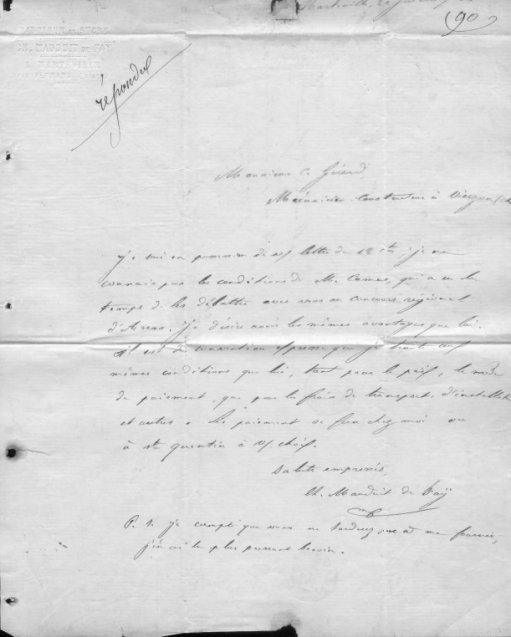 (90)
répondu
Monsieur C. Gérard
Mécanicien Constructeur à Vierzon
Je suis en possession de v/ lettre du 18 ct, je ne
connais pas les conditions de Mr. Camus, qui a eu le
temps de les débattre avec vous au concours régional
d'Arras. Je désire avoir les mêmes avantages que lui.
Il est de convention expresse que je traite aux
mêmes conditions que lui, tant pour le prix, le mode
de paiement, que pour le frais de transport, d'installat
et autres. Le paiement se fera chez moi ou
à St Quentin à v/ choix.
Salute empressé
Ch. Mauduit de Fay
P. S. Je compte que vous ne tarderez pas à me fournir,
j'en ai le plus pressant besoin.